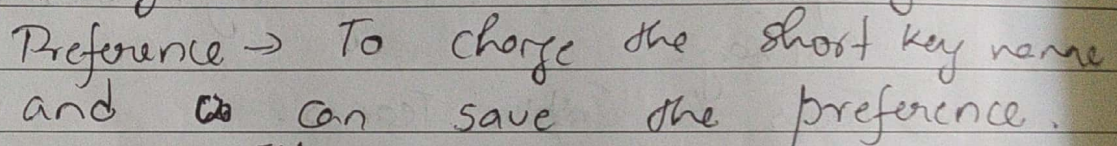 Preference → To change the short key name
and can save the preference.